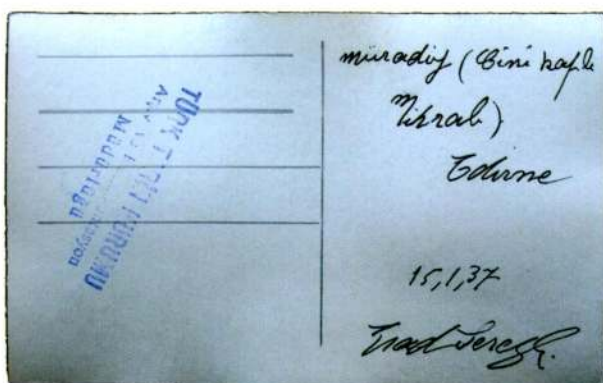 TÜRK TARİH KURUMU
Müdürlüğü
müradiye (Çini kaplı
Mihrab)
Edirne
15,1,37